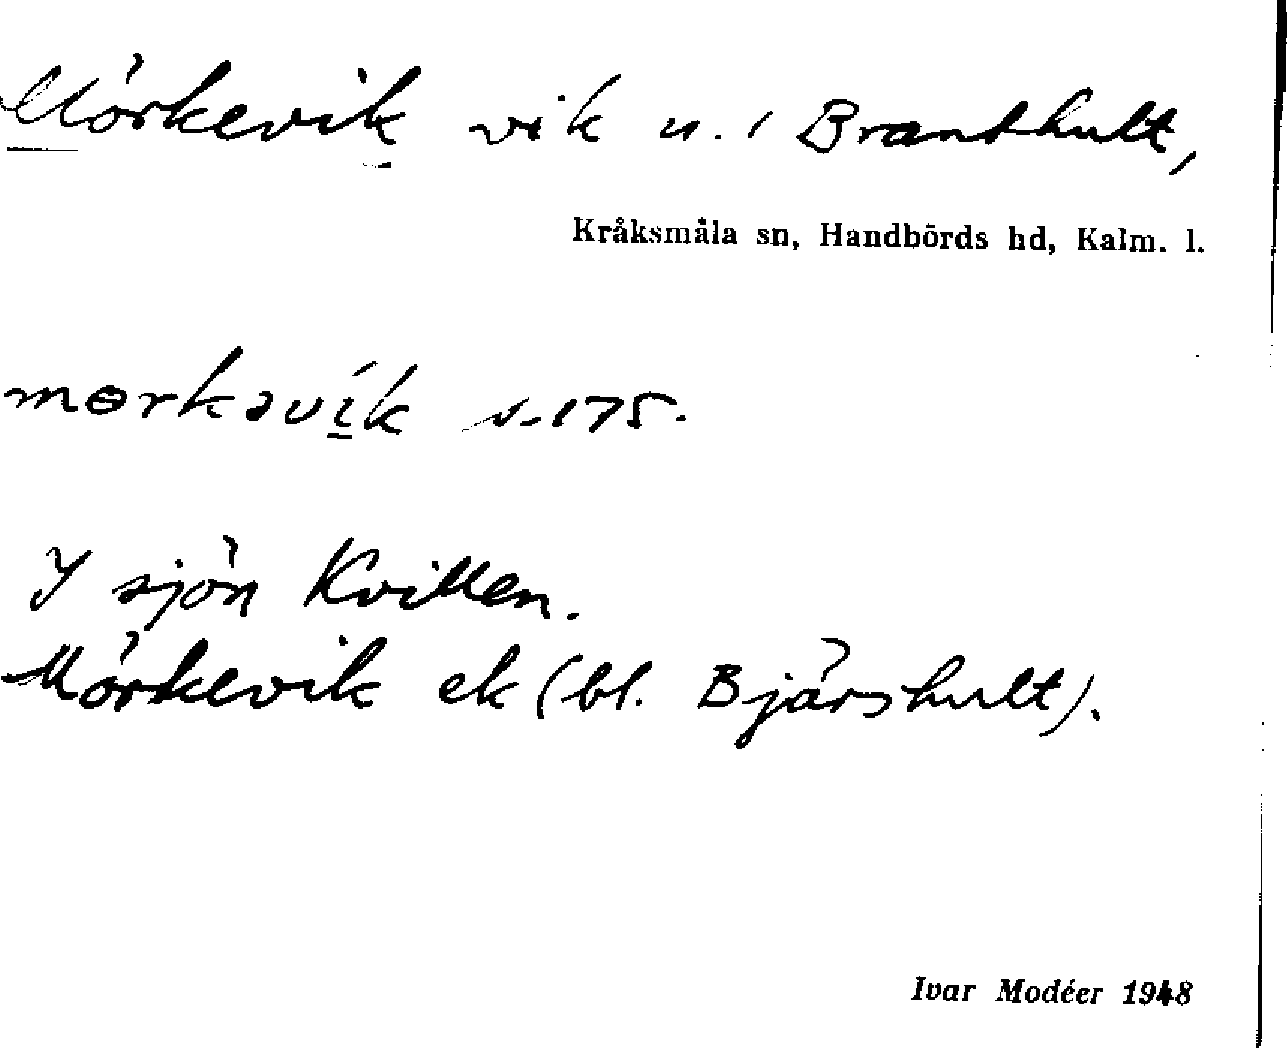 Mörkevik vik u. i Branthult,
Kråksmåla sn, Handbörds hd, Kalm. l.
mɵrkəvík s. 175.
I sjön Kvillen.
Mörkevik ek (bl. Bjärshult).
Ivar Modéer 1948